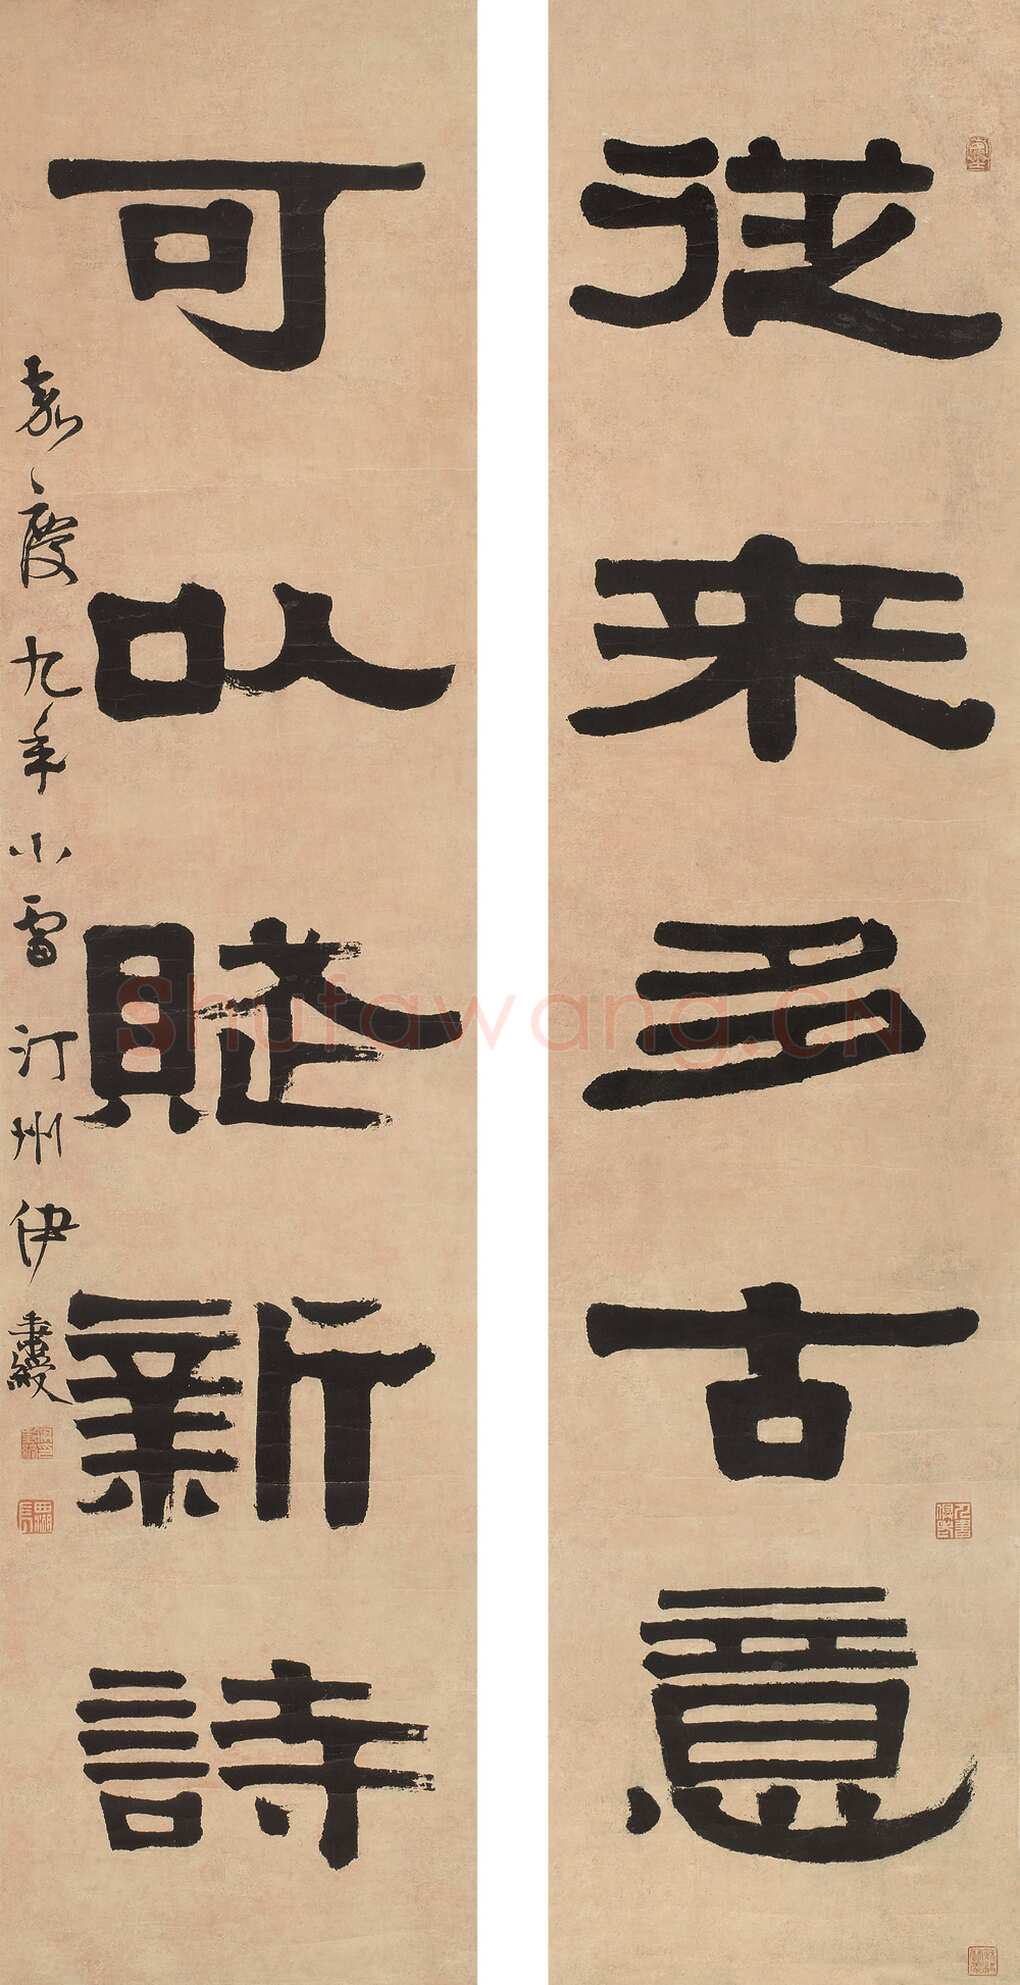 從来多古意
可以賦新詩
嘉慶九年小雪汀州伊秉綬
shufawang.CN